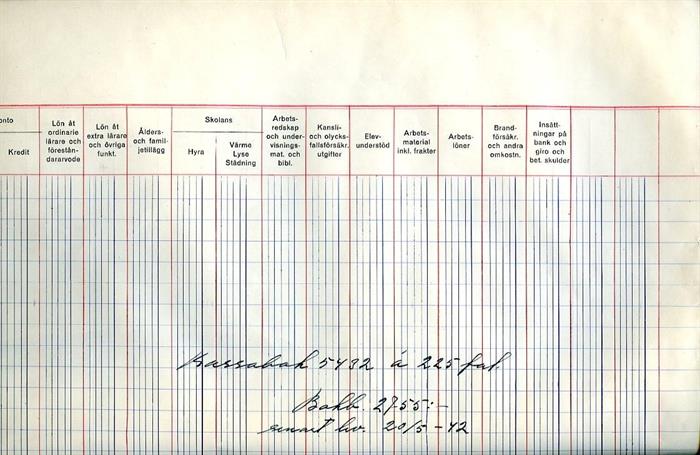 onto
Kredit
Lön åt
ordinarie
lärare och
förestån-
dararvode
Lön åt
extra lärare
och övriga
funkt.
Ålders-
och famil-
jetillägg
Skolans
Hyra
Värme
Lyse
Städning
Arbets-
redskap
och under-
visnings-
mat. och
bibl.
Kansli-
och olycks-
fallsförsäkr.
utgifter
Elev-
understöd
Arbets-
material
inkl. frakter
Arbets-
löner
Brand-
försäkr.
och andra
omkostn.
Insätt-
ningar på
bank och
giro och
bet. skulder
Kassabok 5432 á 225 fol.
Bokb. 27.55:-
senast lev. 20/5-42